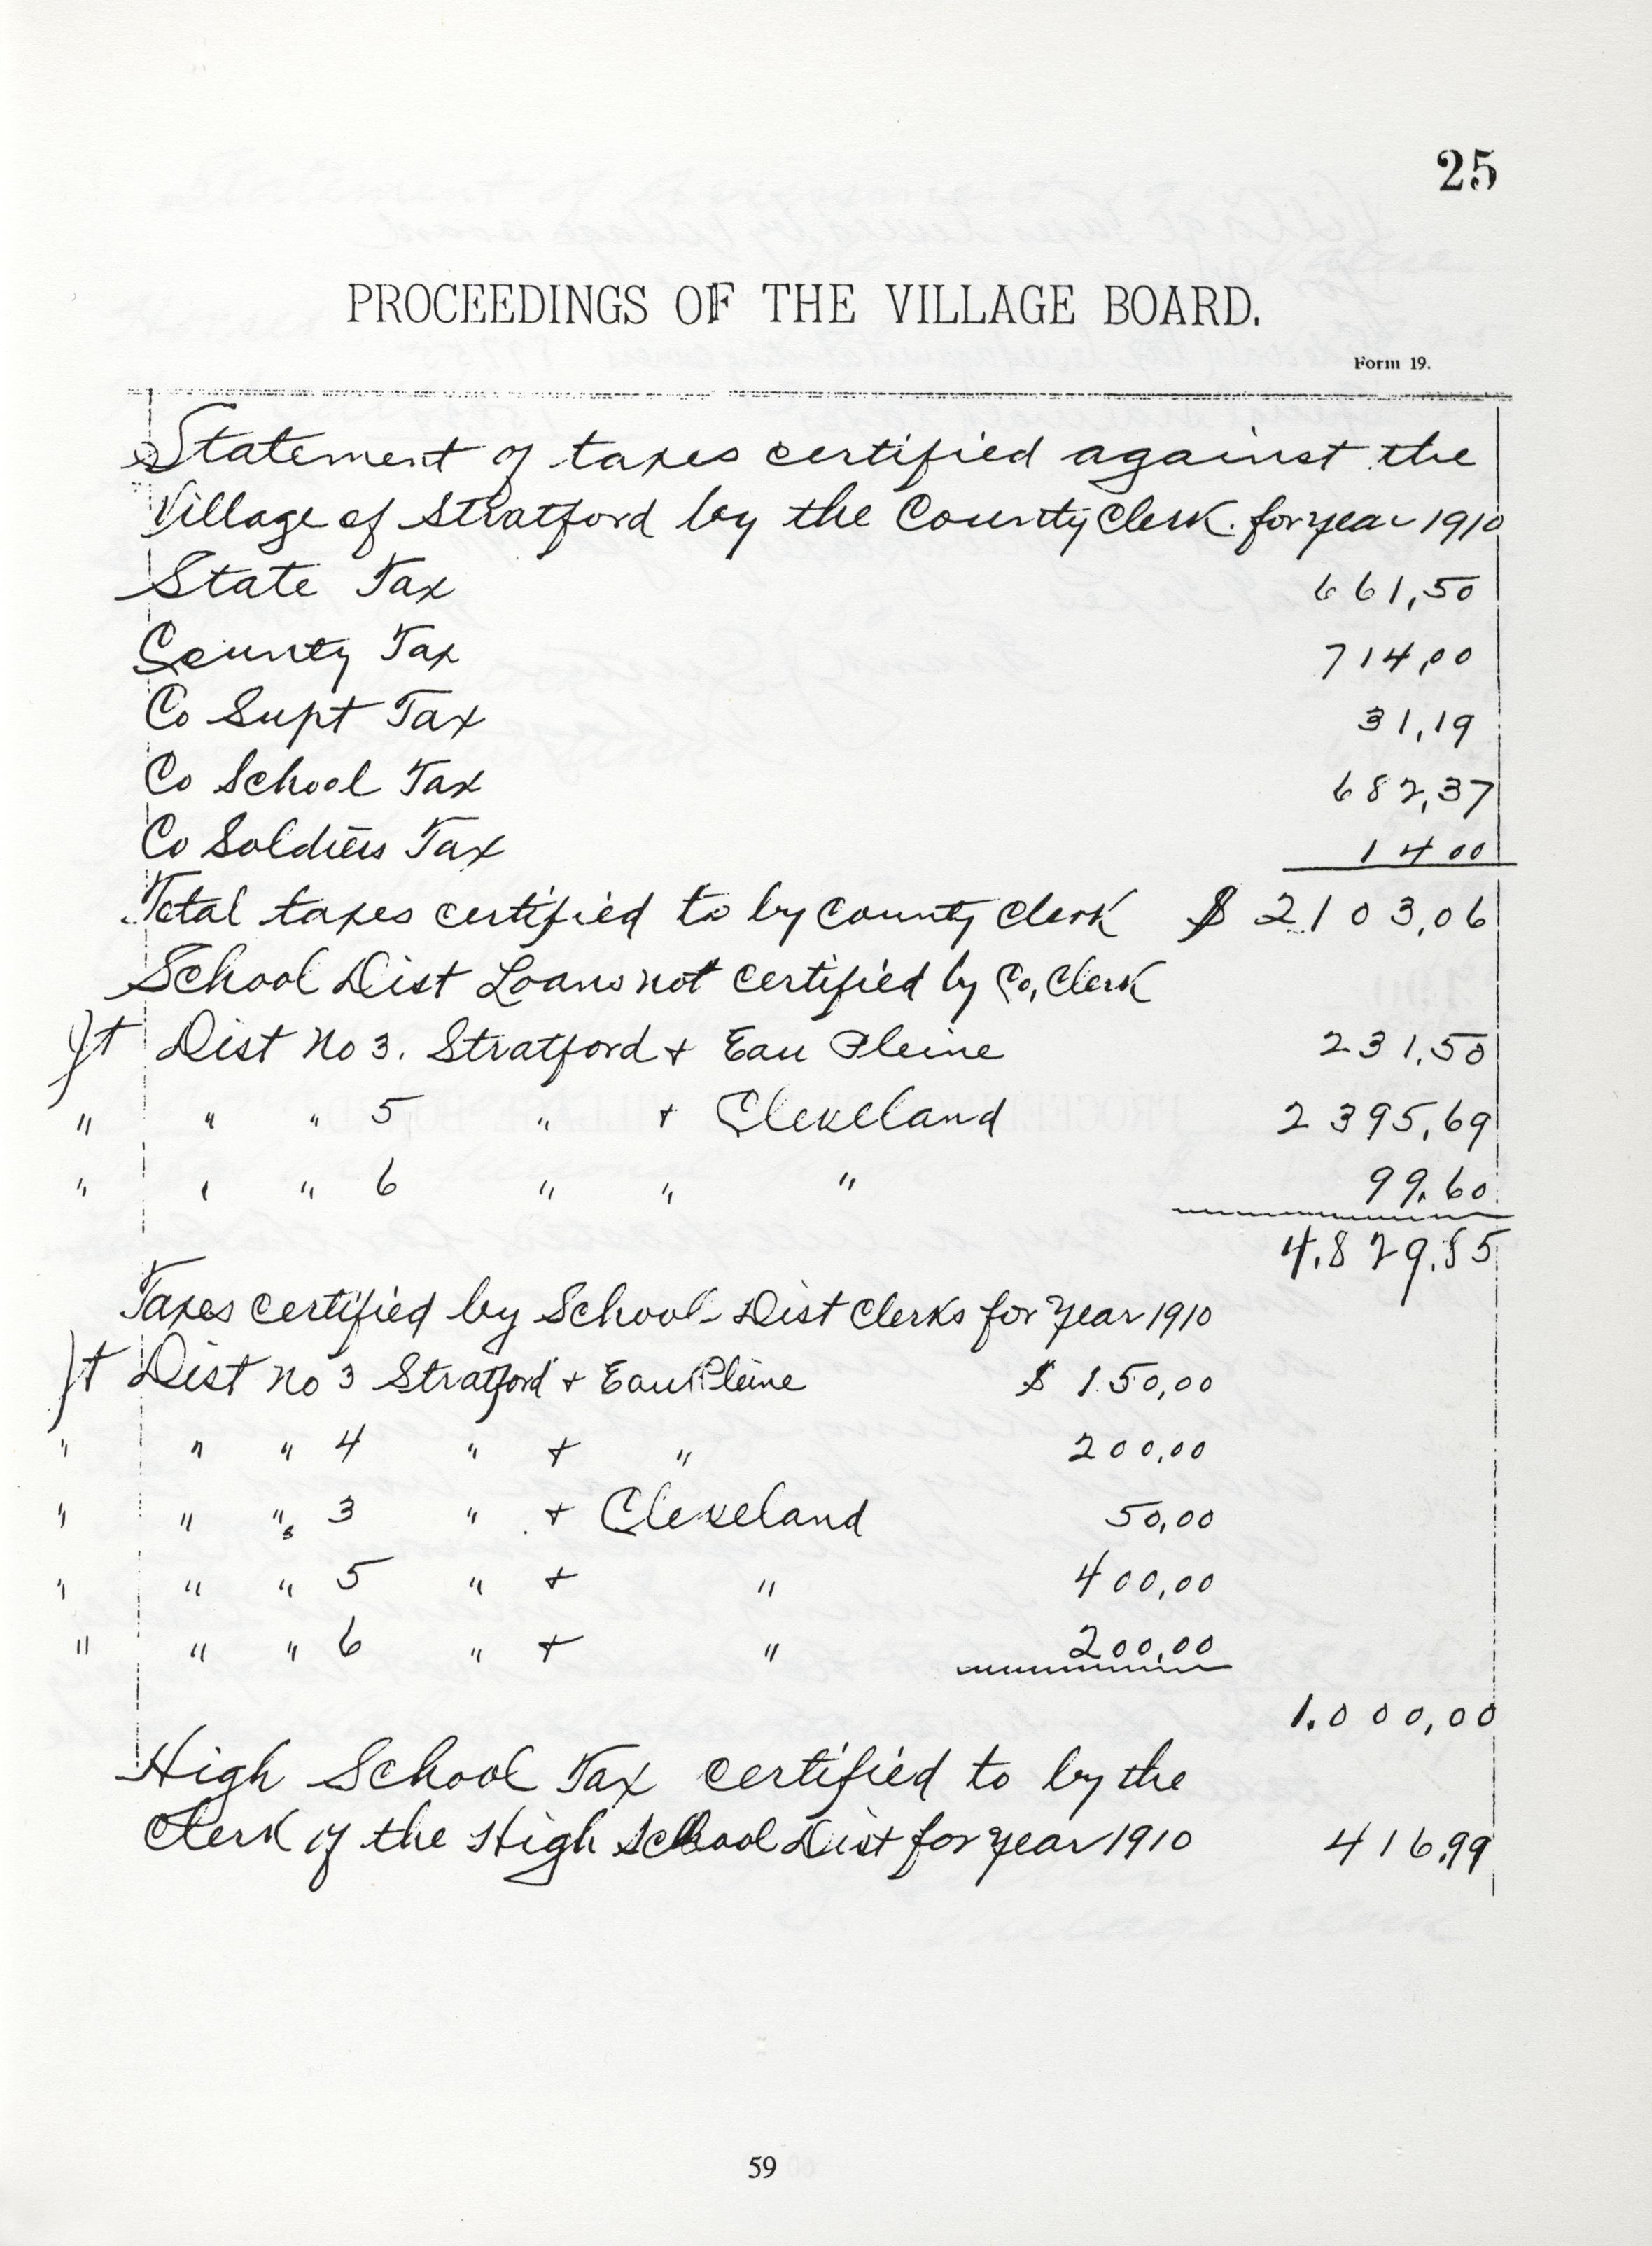 25
PROCEEDINGS OF THE VILLAGE BOARD.
Form 19.
Statement of taxes certified against the
Village of Stratford by the County Clerk. for year 1910
State Tax 661,50
County Tax 714,00
Co Supt Tax 31,19
Co School Tax 682,37
Co Soldiers Tax 14 00
Total taxes certified to by County Clerk $ 2103,06
School Dist Loans not certified by Co, Clerk
Jt Dist No 3. Stratford + Eau Pleine 231,50
" " " 5 " + Cleveland 2395,69
" " " 6 " " " 99.60
4.829.85
Taxes certified by School Dist Clerks for Year 1910
Jt Dist no 3 Stratford + Eau Pleine $ 150,00
" " " 4 " + " 200,00
" " " 3 " + Cleveland 50,00
" " " 5 " + " 400,00
" " " 6 " + " 200,00
1.000,00
High School Tax certified to by the
Clerk of the High School Dist for year 1910 416,99
59